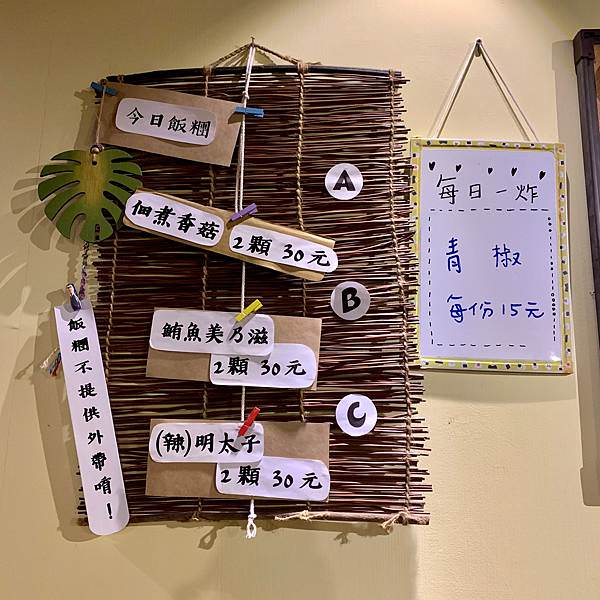 今日飯糰
A
佃煮香菇
2顆 30元
B
鮪魚美乃滋
2顆 30元
C
(辣)明太子
2顆 30元
飯糰不提供外帶唷！
每日一炸
青椒
每份15元